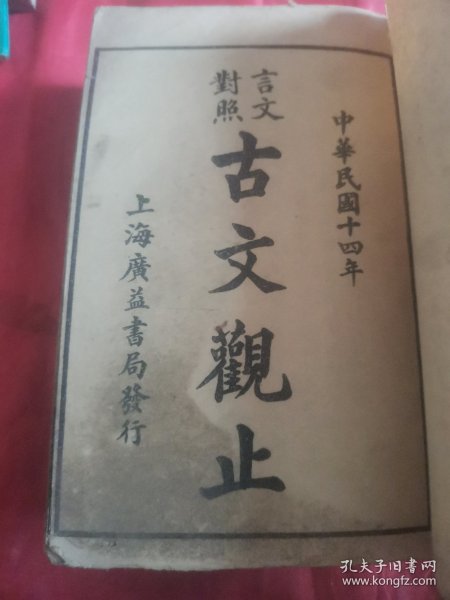 中華民國十四年
言文
對照
古文觀止
上海廣益書局發行
孔夫子旧书网
www.kongfz.com